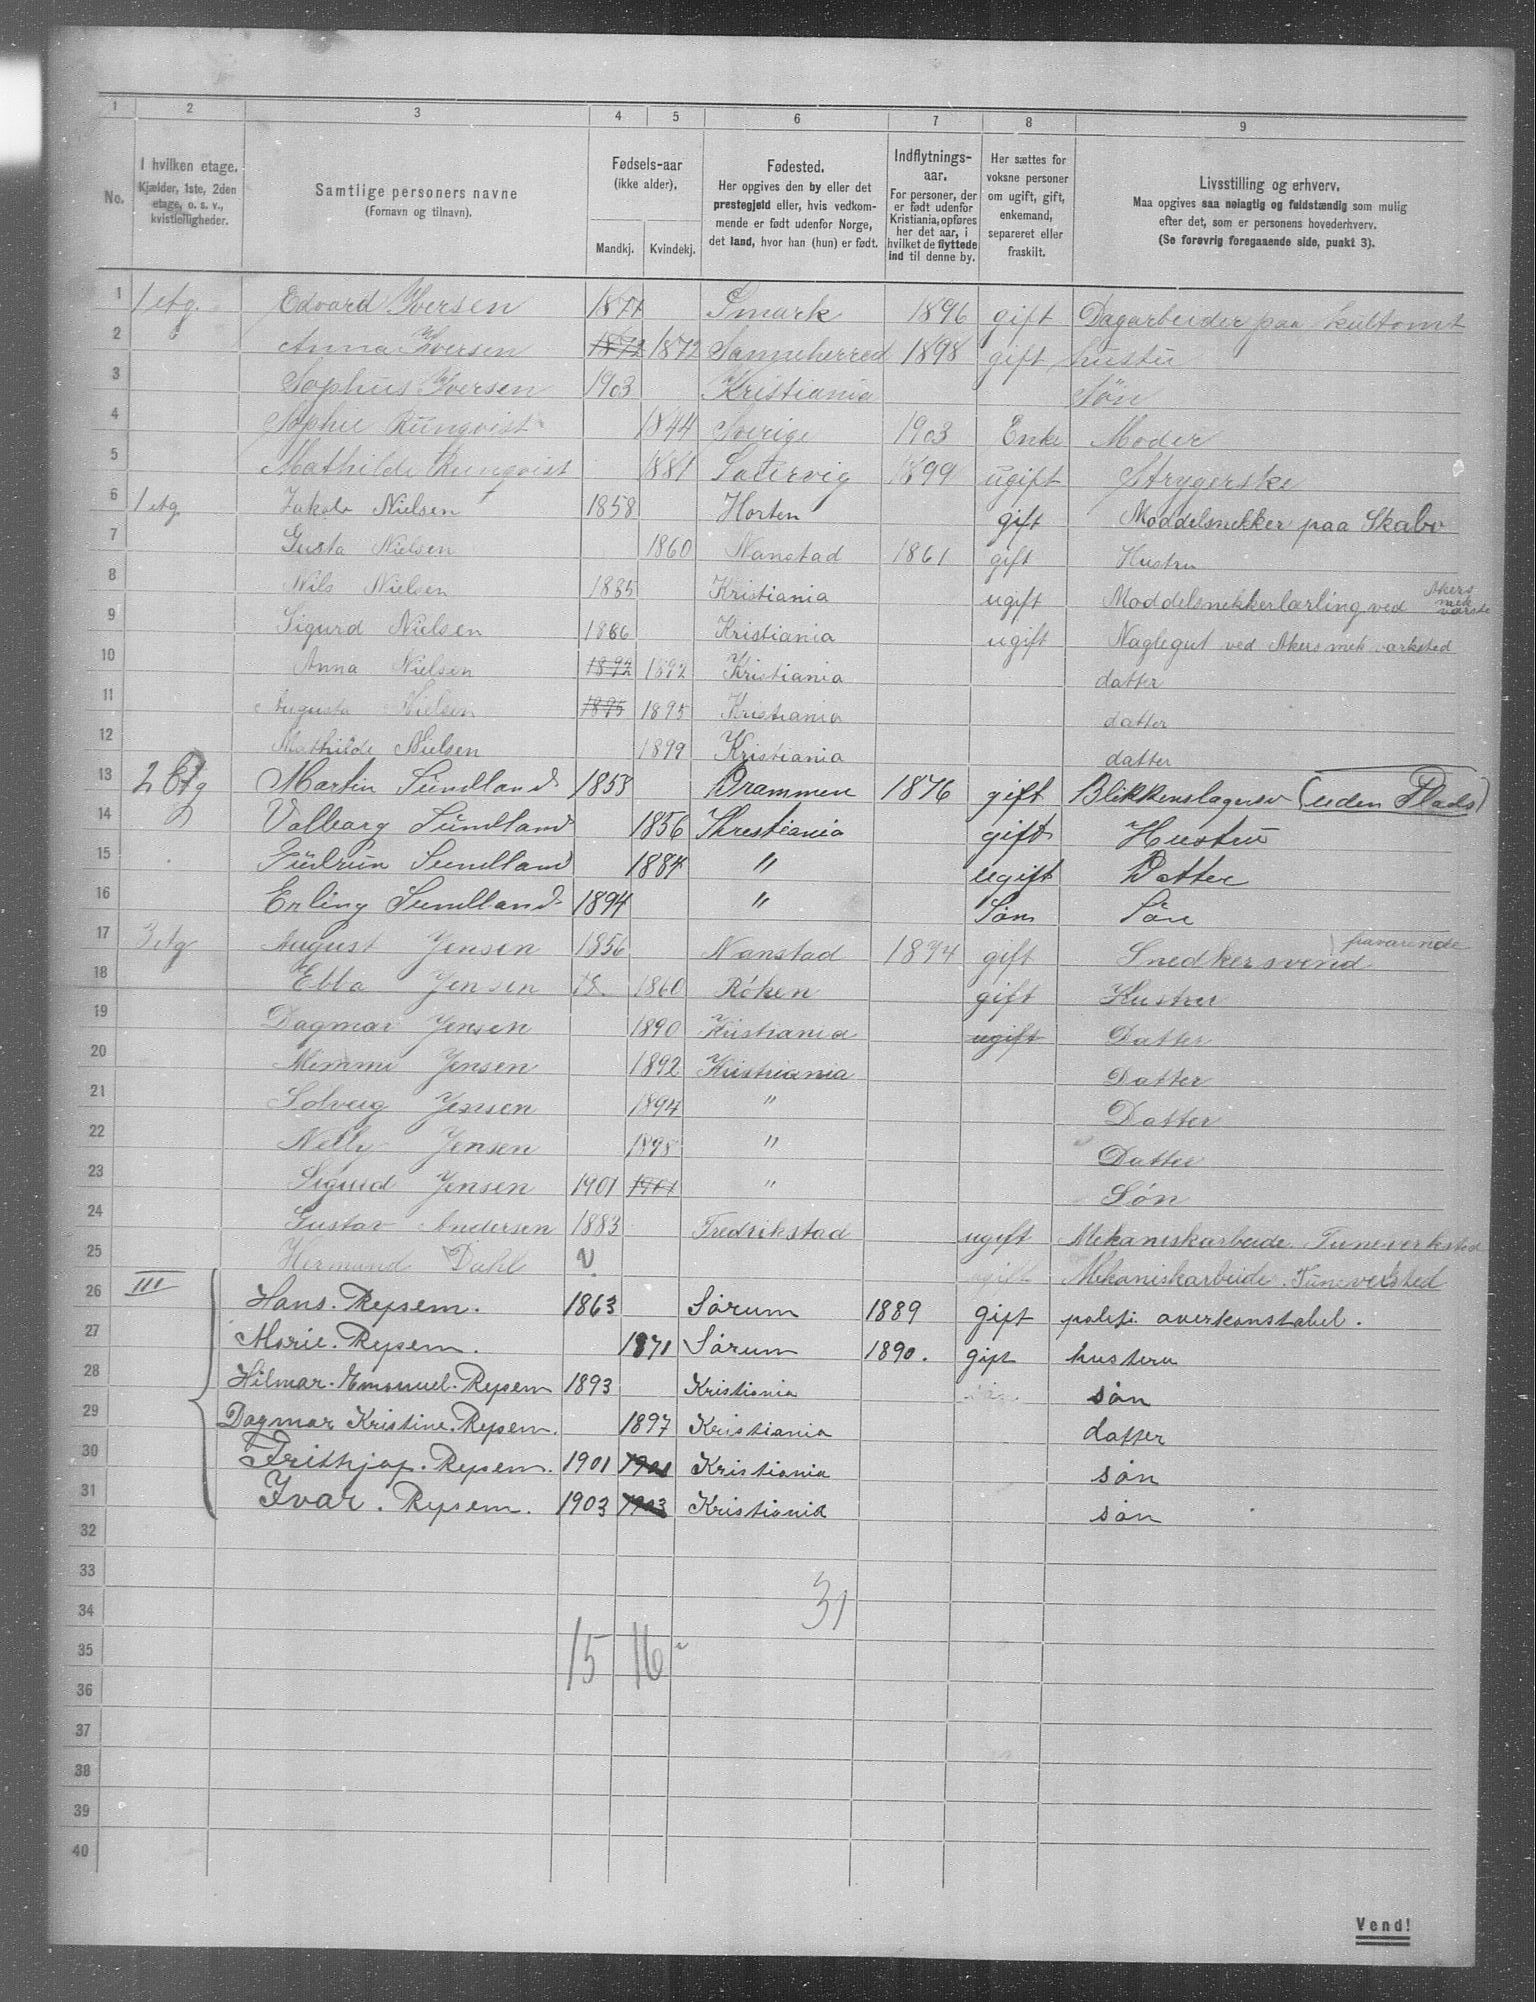 1 2 3 4 5 6 7 8 9
No.
I hvilken etage.
Kjælder, 1ste, 2den
etage, o. s. v.,
kvistleiligheder.
Samtlige personers navne
(Fornavn og tilnavn).
Fødsels-aar
(ikke alder).
Mandkj. Kvindekj.
Fødested.
Her opgives den by eller det
prestegjeld eller, hvis vedkom-
mende er født udenfor Norge,
det land, hvor han (hun) er født.
Indflytnings-
aar.
For personer, der
er født udenfor
Kristiania, opføres
her det aar, i
hvilket de flyttede
ind til denne by.
Her sættes for
voksne personer
om ugift, gift,
enkemand,
separeret eller
fraskilt.
Livsstilling og erhverv.
Maa opgives saa nøiagtig og fuldstændig som mulig
efter det, som er personens hovederhverv.
(Se forøvrig foregaaende side, punkt 3).
1 1 etg. Edvard Iversen 1871 Smark 1896 gift Dagarbeider paa kultomt
2 Anna Iversen 1872 1872 Sanneherred 1898 gift hustru
3 Sophus Iversen 1903 Kristiania Søn
4 Sophie Runqvist 1844 Sverige 1903 Enke Moder
5 Mathilde Runqvist 1881 1899 ugift Strygerske
6 1 etg. Jakob Nielsen 1858 Horten gift Moddelsnekker paa Skabo
7 Gusta Nielsen 1860 Nanstad 1861 gift Hustru
8 Nils Nielsen 1885 Kristiania ugift Moddelsnekkerlærling ved Akers mek varste
9 Sigurd Nielsen 1886 Kristiania ugift Naglegut ved Akers mek varksted
10 Anna Nielsen 1892 1892 Kristiania datter
11 Augusta Nielsen 1895 1895 Kristiania datter
12 Mathilde Nielsen 1899 Kristiania datter
13 2 Etg Martin Sundland 1853 Drammen 1876 gift Blikkenslagersv (uden Plads)
14 Valborg Sundland 1856 Khrestiania gift Hustru
15 Gudrun Sundland 1884 " ugift Datter
16 Erling Sundland 1894 " Søn Søn
17 3 etg August Jensen 1856 Nanstad 1874 gift Snedkersvend
18 Ebba Jensen 1860 Röken gift Hustrer
19 Dagmar Jensen 1890 Kristiania ugift Datter
20 Mimmi Jensen 1892 Kristiania Datter
21 Solveig Jensen 1894 " Datter
22 Nelly Jensen 1898 " Datter
23 Sigurd Jensen 1901 1901 " Søn
24 Gustav Andersen 1883 Fredrikstad ugift Mekaniskarbeide. Tuneverksted
25 Hermand Dahl V ugift Mekaniskarbeide. Tuneverksted
26 III Hans. Rysem. 1863 Sørum 1889 gift politi overkonstabel.
27 Marie. Rysem. 1871 Sørum 1890. gift husteru
28 Hilmar. Emanuel. Rysem 1893 Kristiania søn søn
29 Dagmar Kristine. Rysem. 1897 Kristiania datter
30 Frithjof. Rysem. 1901 1901 Kristiania søn
31 Ivar. Rysem. 1903 1903 Kristiania søn
32
33
34 31
35 15 16
36
37
38
39
40
Vend!